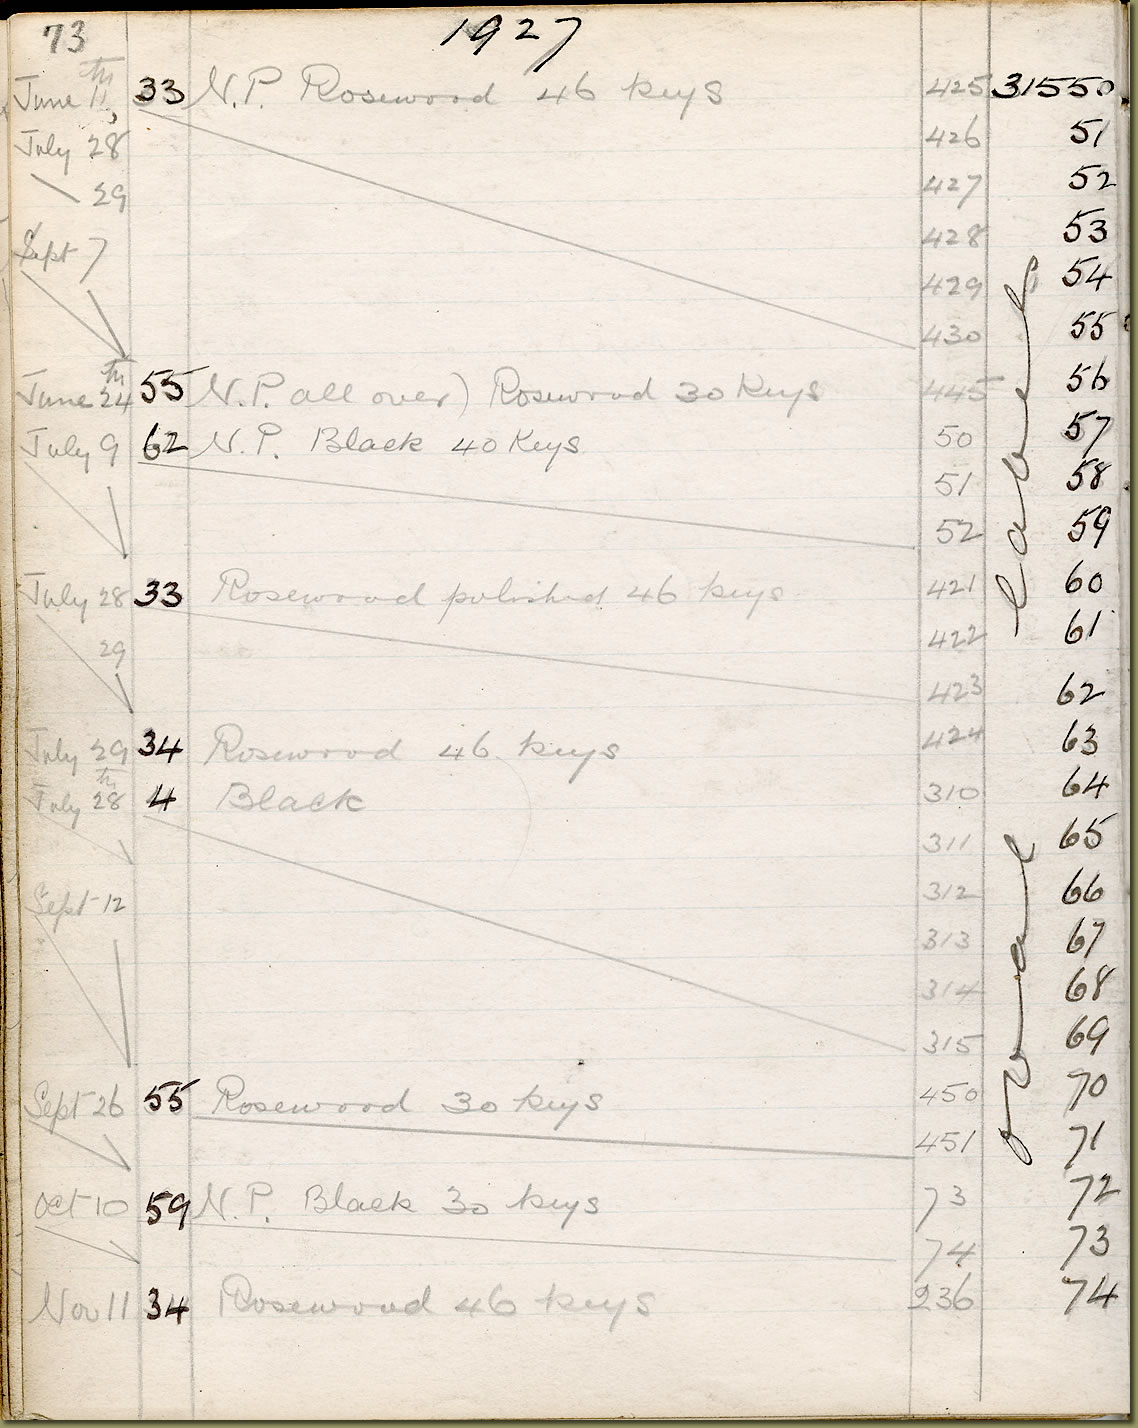 73 1927
June 11th, 33 N.P. Rosewood 46 keys 425 31550
July 28 426 51
29 427 52
Sept 7 428 53
429 54
430 55
June 24th 55 N.P. all over) Rosewood 30 Keys 445 56
July 9 62 N.P. Black 40 Keys 50 57
51 58
52 59
July 28 33 Rosewood polished 46 keys 421 60
29 422 61
423 62
July 29 34 Rosewood 46 keys 424 63
July 28th 4 Black 310 64
311 65
Sept 12 312 66
313 67
314 68
315 69
Sept 26 55 Rosewood 30 keys 450 70
451 71
Oct 10 59 N.P. Black 30 keys 73 72
74 73
Nov 11 34 Rosewood 46 keys 236 74
oval labels